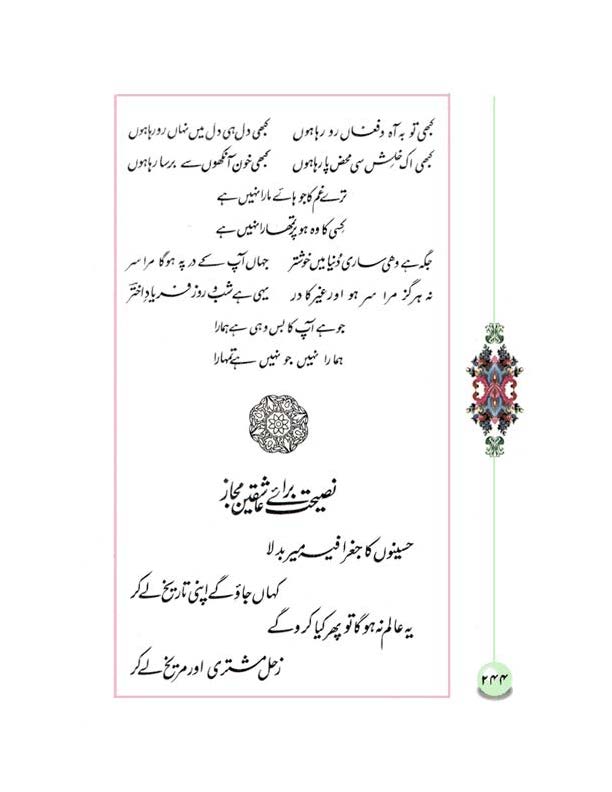 کبھی تو بہ آہ و فغاں رو رہا ہوں کبھی دل ہی دل میں نہاں رو رہا ہوں
کبھی اک خلش سی محض پا رہا ہوں کبھی خون آنکھوں سے برسا رہا ہوں
ترے غم کا جو ہائے مارا نہیں ہے
کسی کا وہ ہو پر تمھارا نہیں ہے
جگہ ہے وہی ساری دُنیا میں خوشتر جہاں آپ کے در پہ ہوگا مرا سر
نہ ہرگز مرا سر ہو اور غیر کا در یہی ہے شب و روز فریادِ اختؔر
جو ہے آپ کا بس وہی ہے ہمارا
ہمارا نہیں جو نہیں ہے تمہارا
نصیحت برائے عاشقین مجاز
حسینوں کا جغرافیہ میر بدلا
کہاں جاؤ گے اپنی تاریخ لے کر
یہ عالم نہ ہوگا تو پھر کیا کرو گے
زحل مشتری اور مریخ لے کر
۲۴۴